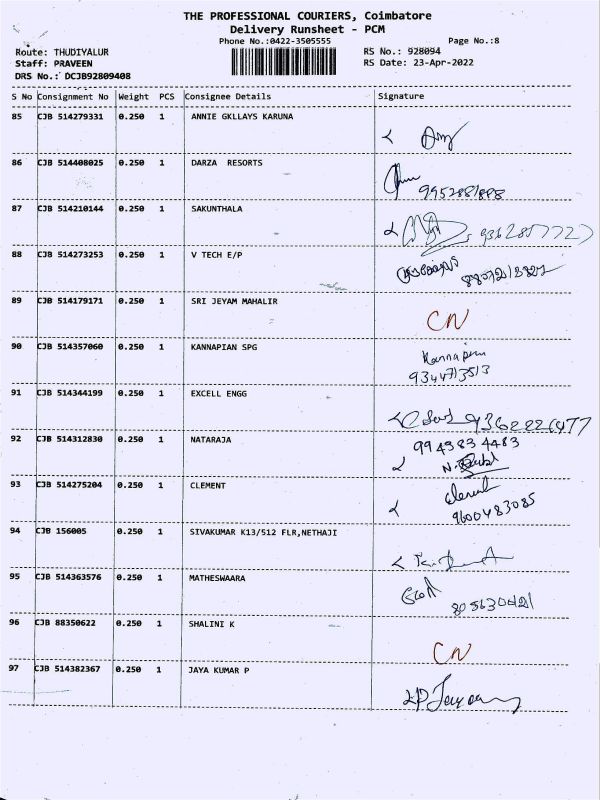 THE PROFESSIONAL COURIERS, Coimbatore
Delivery Runsheet - PCM
Phone No.:0422-3505555 Page No.:8
Route: THUDIYALUR RS No.: 928094
Staff: PRAVEEN RS Date: 23-Apr-2022
DRS No.: DCJB92809408
S No Consignment No Weight PCS Consignee Details Signature
85 CJB 514279331 0.250 1 ANNIE GKLLAYS KARUNA
86 CJB 514408025 0.250 1 DARZA RESORTS
87 CJB 514210144 0.250 1 SAKUNTHALA
88 CJB 514273253 0.250 1 V TECH E/P
89 CJB 514179171 0.250 1 SRI JEYAM MAHALIR
CN
90 CJB 514357060 0.250 1 KANNAPIAN SPG
9344713513
91 CJB 514344199 0.250 1 EXCELL ENGG
92 CJB 514312830 0.250 1 NATARAJA
9943834483
93 CJB 514275204 0.250 1 CLEMENT
9600483085
94 CJB 156005 0.250 1 SIVAKUMAR K13/512 FLR,NETHAJI
95 CJB 514363576 0.250 1 MATHESWAARA
96 CJB 88350622 0.250 1 SHALINI K
CN
97 CJB 514382367 0.250 1 JAYA KUMAR P